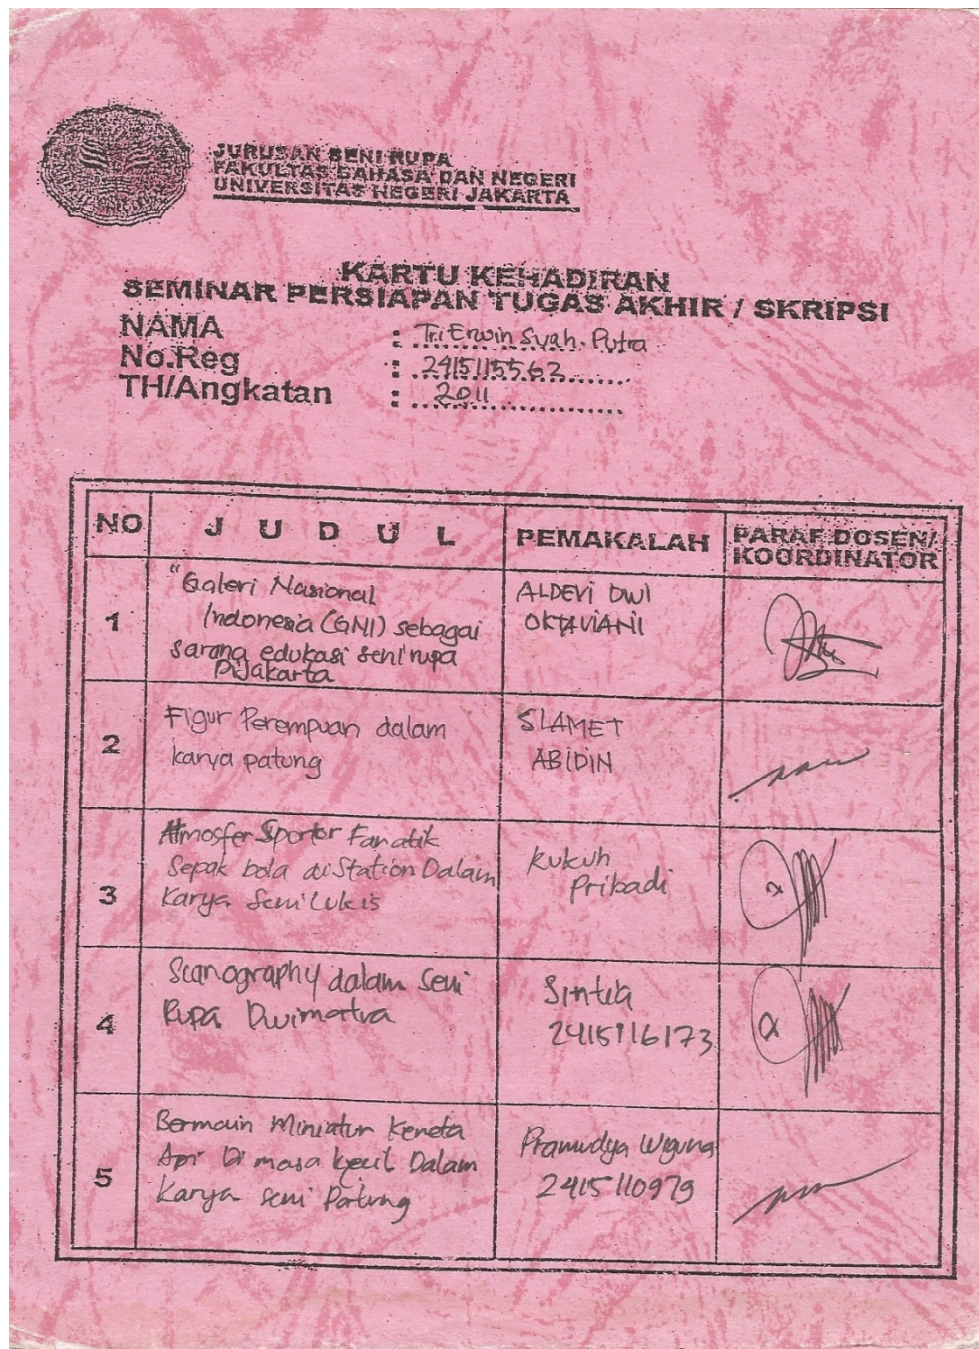 JURUSAN SENI RUPA
FAKULTAS BAHASA DAN NEGERI
UNIVERSITAS NEGERI JAKARTA
KARTU KEHADIRAN
SEMINAR PERSIAPAN TUGAS AKHIR / SKRIPSI
NAMA : Tri Erwin Syah Putra
No.Reg : 2415115562
TH/Angkatan : 2011
NO J U D U L PEMAKALAH PARAF DOSEN/
KOORDINATOR
1
"Galeri Nasional
Indonesia (GNI) sebagai
sarang edukasi seni rupa
DiJakarta
ALDEVI DWI
OKTAVIANI
2
Figur Perempuan dalam
karya patung
SLAMET
ABIDIN
3
Atmosfer Sportor Fanatik
Sepak bola di Station Dalam
Karya Seni Lukis
Kukuh
Pribadi
4
Scanography dalam Seni
Rupa Dwimatra
Sintia
2415116173
5
Bermain Miniatur Kereta
Api Di masa kecil Dalam
Karya seni Patung
Pramudya Wiguna
2415110979